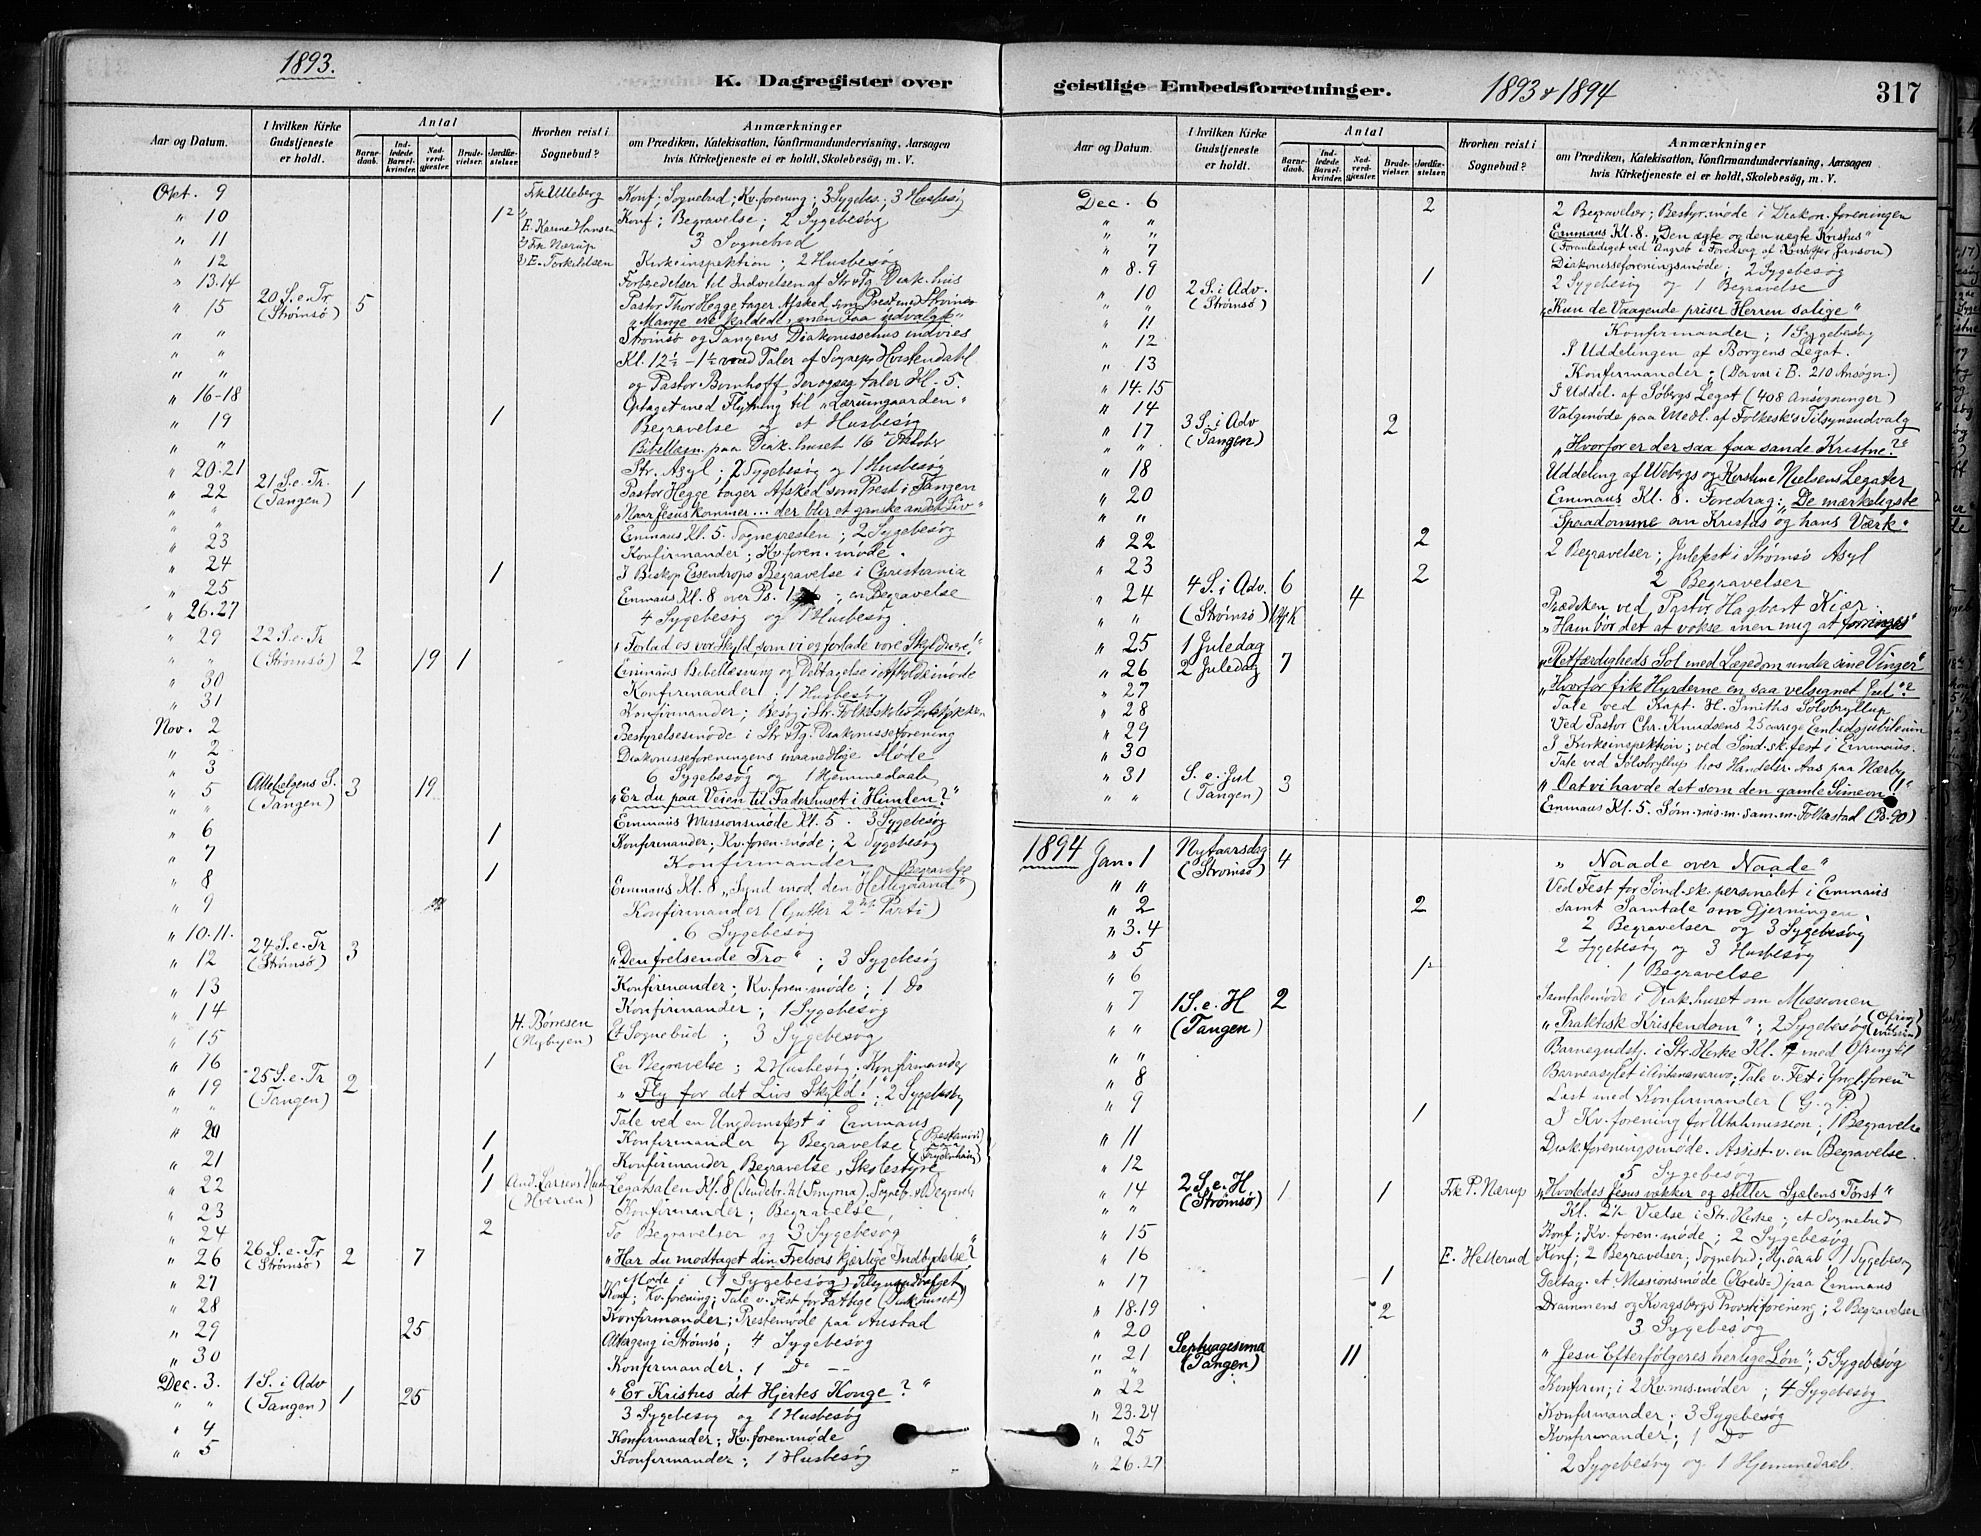 1893.
K. Dagregister over
Aar og Datum.
I hvilken Kirke Gudstjeneste er holdt.
Antal
Barnedaab.
Indledede Barselkvinder.
Nadverdgjester.
Brudevielser.
Jordfæstelser.
Hvorhen reist i Sognebud?
Anmærkninger
om Prædiken, Katekisation, Konfirmandundervisning, Aarsagen
hvis Kirketjeneste ei er holdt, Skolebesøg, m. V.
Okt. 9 Frk Ulleberg Konf; Sognebud; Kv.forening; 3 Sygebes; 3 Husbesøg
" 10 1 Konf; Begravelse; 2 Sygebesøg
" 11 E. Karine Hansen Frk Nærup 3 Sognebud
" 12 E. Torkildsen Kirkeinspektion; 2 Husbesøg
" 13.14 Forberedelser til Indvielsen af Str & Tg Diak.hus
" 15 20 S. e. Tr (Strømsø) 5 Pastor Thor Hegge tager Afsked som Prest med Strømsø
" " "Mange ere kaldede, men Faa udvalgte"
" " Strømsø og Tangens Diakonissehus indvies
" " Kl. 12½ - 1½ med Taler af Sognepr Hvistendahl
og Pastor Bornhoff, der ogsaa taler Kl. 5.
" 16-18 Optaget med Flytning til "Lærumgaarden"
" 19 1 Begravelse og et Husbesøg
" " Bibellæsn. paa Diak.huset 16 Oktobr
" 20.21 Str. Asyl; 2 Sygebesøg og 1 Husbesøg
" 22 21 S. e. Tr. (Tangen) 1 Pastor Hegge tager Afsked som Prest i Tangen
" " "Naar Jesus kommer... der blir et ganske andet Liv"
" " Emmaus Kl. 5. Sognepresten; 2 Sygebesøg
" 23 Konfirmander; Kv.foren.møde.
" 24 1 I Biskop Essendrops Begravelse i Christiania
" 25 Emmaus Kl. 8 over Ps. ; en Begravelse
" 26.27 4 Sygebesøg og 1 Husbesøg
" 29 22 S. e. Tr (Strømsø) 2 19 1 "Forlad os vor Skyld, som vi og forlade vore Skyldnere!"
" " Emmaus Bibellæsning og Deltagelse i Afholdsmøde
" 30 Konfirmander; 1 Husbesøg
" 31 Konfirmander; Besøg i Str. Folkeskoles
Nov. 2 Bestyrelsesmøde i Str & Tg. Diakonisseforening
" 2 Diakonisseforeningens maanedlige Møde
" 3 6 Sygebesøg og 1 Hjemmedaab
" 5 Allehelgens S. (Tangen) 3 19 "Er du paa Veien til Faderhuset i Himlen?"
" " Emmaus Missionsmøde Kl. 5. 3 Sygebesøg
" 6 1 Konfirmander; Kv.foren.møde; 2 Sygebesøg
" 7 Konfirmander
" 8 1 Emmaus Kl. 8 "Synd mod den Helligaand") Begravelse
" 9 Konfirmander (Gutter 2det Parti)
" 10.11. 6 Sygebesøg
" 12 24 S. e. Tr (Strømsø) 3 "Den frelsende Tro"; 3 Sygebesøg
" 13 Konfirmander; Kv.foren.møde; 1 Do
" 14 Konfirmander; 1 Sygebesøg
" 15 H. Børresen (Nybyen) Et Sognebud; 3 Sygebesøg
" 16 1 En Begravelse; 2 Husbesøg; Konfirmander
" 19 25 S. e. Tr (Tangen) 2 "Fly for det Livs Skyld!"; 2 Sygebesøg
" " Tale ved en Ungdomsfest i Emmaus
" 20 1 Konfirmander og Begravelse
" 21 1 Konfirmander, Begravelse, Skolestyre
" 22 1 And. Larsens Hust (Hverven) Legatsalen Kl. 8
" 23 Konfirmander; Begravelse
" 24 2 To Begravelser og 3 Sygebesøg
" 26 26 S. e. Tr (Strømsø) 2 7 "Har du modtaget din Frelsers kjærlige Indbydelse?"
" 27 Møde i (1 Sygebesøg) Tilsynsudvalget
Konf; Kv.forening; Tale v. Fest for Fattige (Diak.huset)
" 28 Konfirmander; Prestemøde paa Austad
" 29 25 Altergang i Strømsø; 4 Sygebesøg
" 30 Konfirmander; 1 Do
Dec. 3. 1 S. i Adv (Tangen) 1 25 "Er Kristus dit Hjertes Konge?"
" " 3 Sygebesøg og 1 Husbesøg
" 4 Konfirmander; Kv.foren.møde
" 5 Konfirmander; 1 Husbesøg
geistlige Embedsforretninger.
1893 & 1894
317
Aar og Datum.
I hvilken Kirke Gudstjeneste er holdt.
Antal
Barnedaab.
Indledede Barselkvinder.
Nadverdgjester.
Brudevielser.
Jordfæstelser.
Hvorhen reist i Sognebud?
Anmærkninger
om Prædiken, Katekisation, Konfirmandundervisning, Aarsagen
hvis Kirketjeneste ei er holdt, Skolebesøg, m. V.
Dec. 6 2 2 Begravelser; Bestyr.møde i Diakon.foreningen
" " Emmaus Kl. 8. "Den ægte og den uægte Kristus"
" " (Foranlediget ved Angreb i Foredrag af Kristoffer Janson)
" 7 Diakonisseforeningsmøde; 2 Sygebesøg
" 8.9 1 2 Sygebesøg og 1 Begravelse
" 10 2 S. i Adv. (Strømsø) "Kun de Vaagende priser Herren salige"
" 11 Konfirmander; 1 Sygebesøg
" 12 I Uddelingen af Borgens Legat.
" 13 Konfirmander; (Der var i B. 210 Ansøgn.)
" 14.15 I Uddel. af Søbergs Legat (408 Ansøgninger)
" 14 Valgmøde paa Medl. af Folkesk's Tilsynsudvalg
" 17 3 S. i Adv (Tangen) 2 "Hvorfor er der saa faa sande Kristne?"
" 18 Uddeling af Ulebergs og Kirstine Nielsens Legater
" 20 Emmaus Kl. 8. Foredrag: "De mærkeligste
" " Spaadomme om Kristus og hans Værk.
" 22 2 2 Begravelser; Julefest i Strømsø Asyl
" 23 2 2 Begravelser
" 24 4 S. i Adv. (Strømsø) 6 4 Prædiken ved Pastor Hagbart Kiær.
" " "Ham bør det at vokse men mig at forringes"
" 25 1 Juledag "Retfærdigheds Sol med Lægedom under sine Vinger"
" 26 2 Juledag 7 "Hvorfor fik Hyrderne en saa velsignet Jul"?
" 27 Tale ved Kapt. H. Smiths Sølvbryllup
" 28 Ved Pastor Chr. Knudsens 25 aarige Embedsjubilæum
" 29 I Kirkeinspektion; ved Sønd.sk.fest i Emmaus.
" 30 Tale ved Sølvbryllup hos Handelsr. Aas paa Nærby
" 31 S. e. Jul (Tangen) 3 "O at vi havde det som den gamle Simeon!"
" " Emmaus Kl. 5. Søm.mis.m. sam.m. Folkestad
1894 Jan. 1 Nytaarsdag (Strømsø) 4 "Naade over Naade"
" " Ved Fest for Sønd.sk.personalet i Emmaus
samt Samtale om Gjerningen,
" 2 2 2 Begravelser og 3 Sygebesøg
" 3.4 2 Sygebesøg og 3 Husbesøg
" 5 1 1 Begravelse
" 6 Samtalemøde i Diak.huset om Missionen
" 7 1 S. e. H (Tangen) 2 "Praktisk Kristendom"; 2 Sygebesøg
" " Barnegudstj. i Str. Kirke Kl. med Ofring til
" " Barneasylet i ; Tale v. Fest i Yngl.foren
" 8 Læst med Konfirmander (G. & P.)
" 9 1 I Kv.forening for Utahmission; 1 Begravelse
" 11 Diak.foreningsmøde. Assist. v. en Begravelse.
" 12 5 Sygebesøg
" 14 2 S. e. H (Strømsø) 1 1 Frk P. Nærup "Hvorledes Jesus vækker og stiller Sjælens Tørst"
" " Kl. 2½ Vielse i Str. Kirke; et Sognebud
" 15 Konf; Kv.foren.møde; 2 Sygebesøg
" 16 E. Hellerud Konf; 2 Begravelser; Sognebud; Hj.daab; 1 Sygebesøg
" 17 1 Deltag. et Missionsmøde (Kreds=) paa Emmaus
" 18.19 2 Drammens og Kongsbergs Provstiforening; 2 Begravelser
" 20 3 Sygebesøg
" 21 Septuagesima (Tangen) 11 "Jesu Efterfølgeres herlige Løn"; 5 Sygebesøg
" 22 Konfirm; i 2 Kv.mis.møder; 4 Sygebesøg
" 23.24 Konfirmander; 3 Sygebesøg
" 25 Konfirmander; 1 Do
" 26.27 2 Sygebesøg og 1 Hjemmedaab